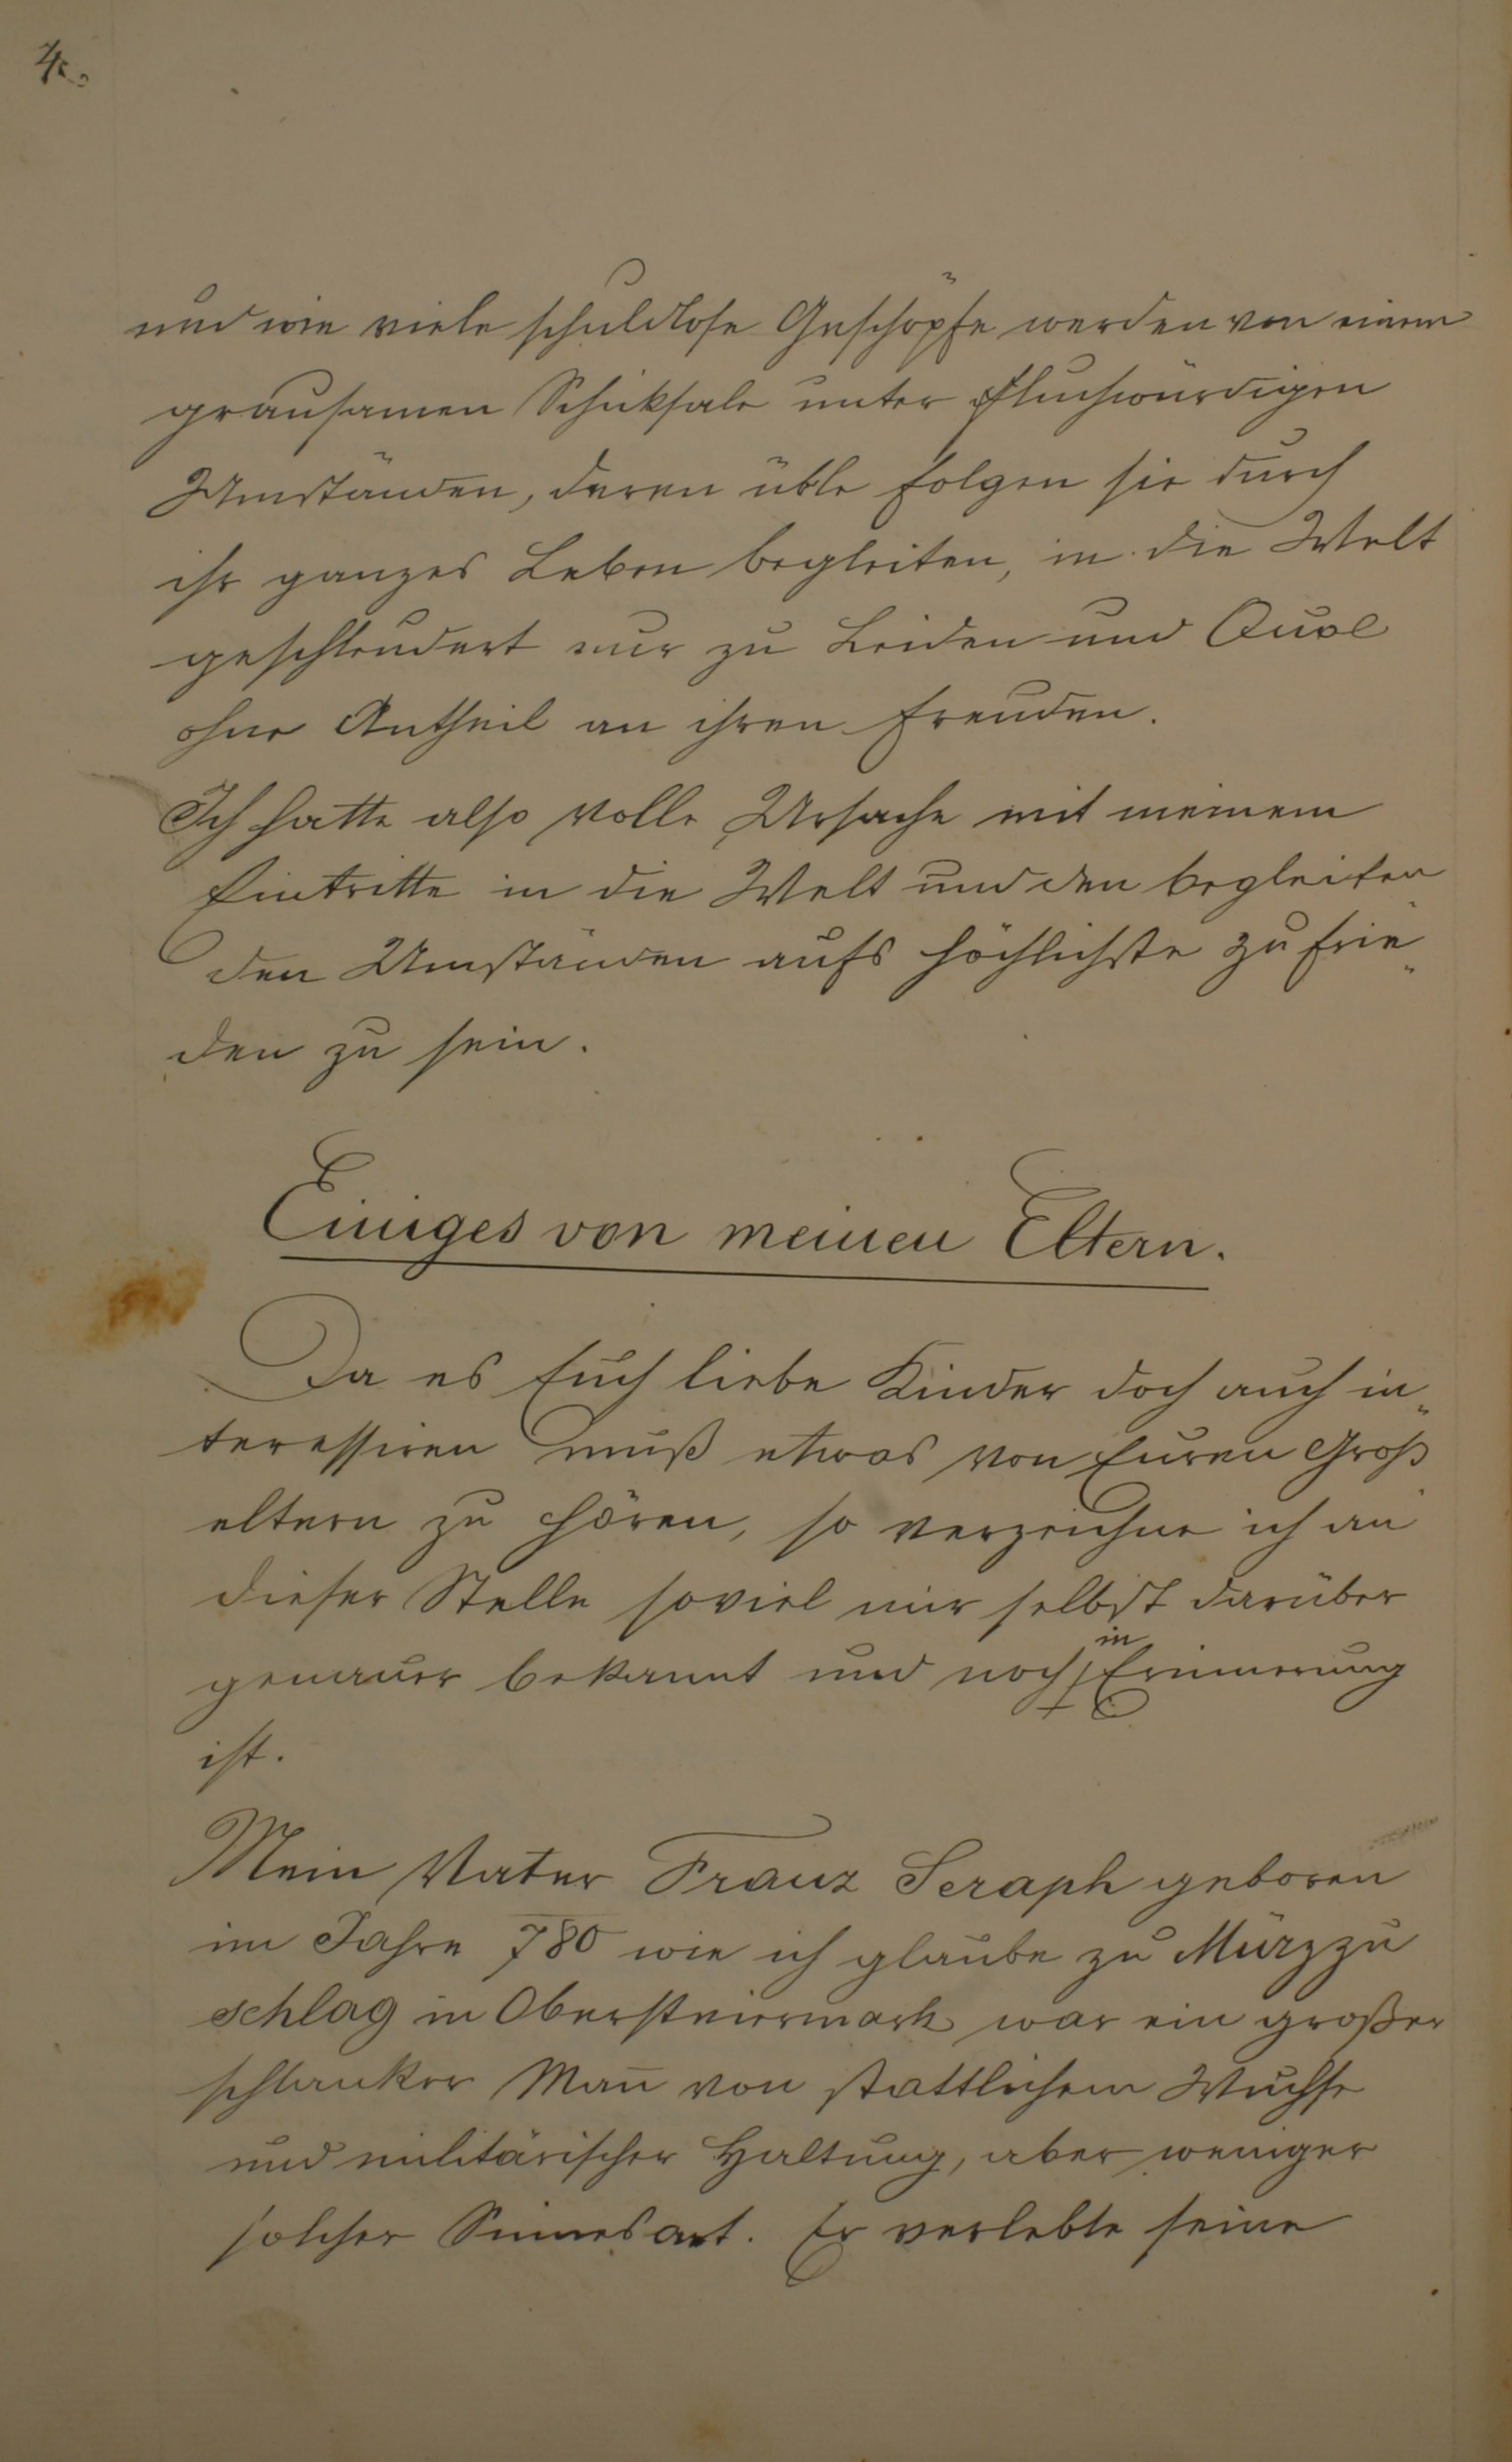 4.
und wie viele schuldlose Geschöpfe werden von einem
grausamen Schicksale unter fluchwürdigen
Umständen, deren üble Folgen sie durch
ihr ganzes Leben begleiten, in die Welt
geschleudert nur zu Leiden und Qual
ohne Antheil an ihren Freuden.
Ich hatte also volle Ursache mit meinem
Eintritte in die Welt und den begleiten
den Umständen aufs höchlichste zufrie„
den zu sein.
Einiges von meinen Eltern.
Da es Euch liebe Kinder doch auch in„
teressiren muß etwas von Euren Groß
eltern zu hören, so verzeichne ich an
dieser Stelle soviel mir selbst darüber
genauer bekannt und noch in Erinnerung
ist.
Mein Vater Franz Seraph geboren
im Jahre 780 wie ich glaube zu Mürzzu
schlag in Obersteiermark war ein großer
schlanker Man̄ von stattlichem Wuchse
und militärischer Haltung, aber weniger
solcher Sinnesart. Er verlebte seine